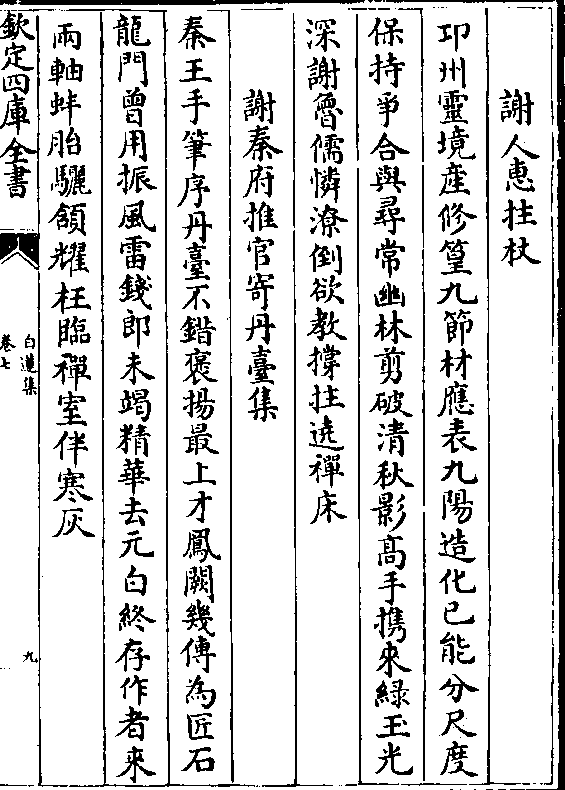 謝人惠拄杖
邛州靈境産修篁九節材應表九陽造化已能分尺度
保持爭合與尋常幽林剪破清秋影髙手携來緑玉光
深謝魯儒憐潦倒欲教撐拄遶禪床
謝秦府推官寄丹臺集
秦王手筆序丹臺不錯褒揚最上才鳳闕幾傳為匠石
龍門曽用振風雷錢郎未竭精華去元白終存作者來
兩軸蚌胎驪頷耀枉臨禪室伴寒灰
欽定四庫全書
白蓮集
卷七
九